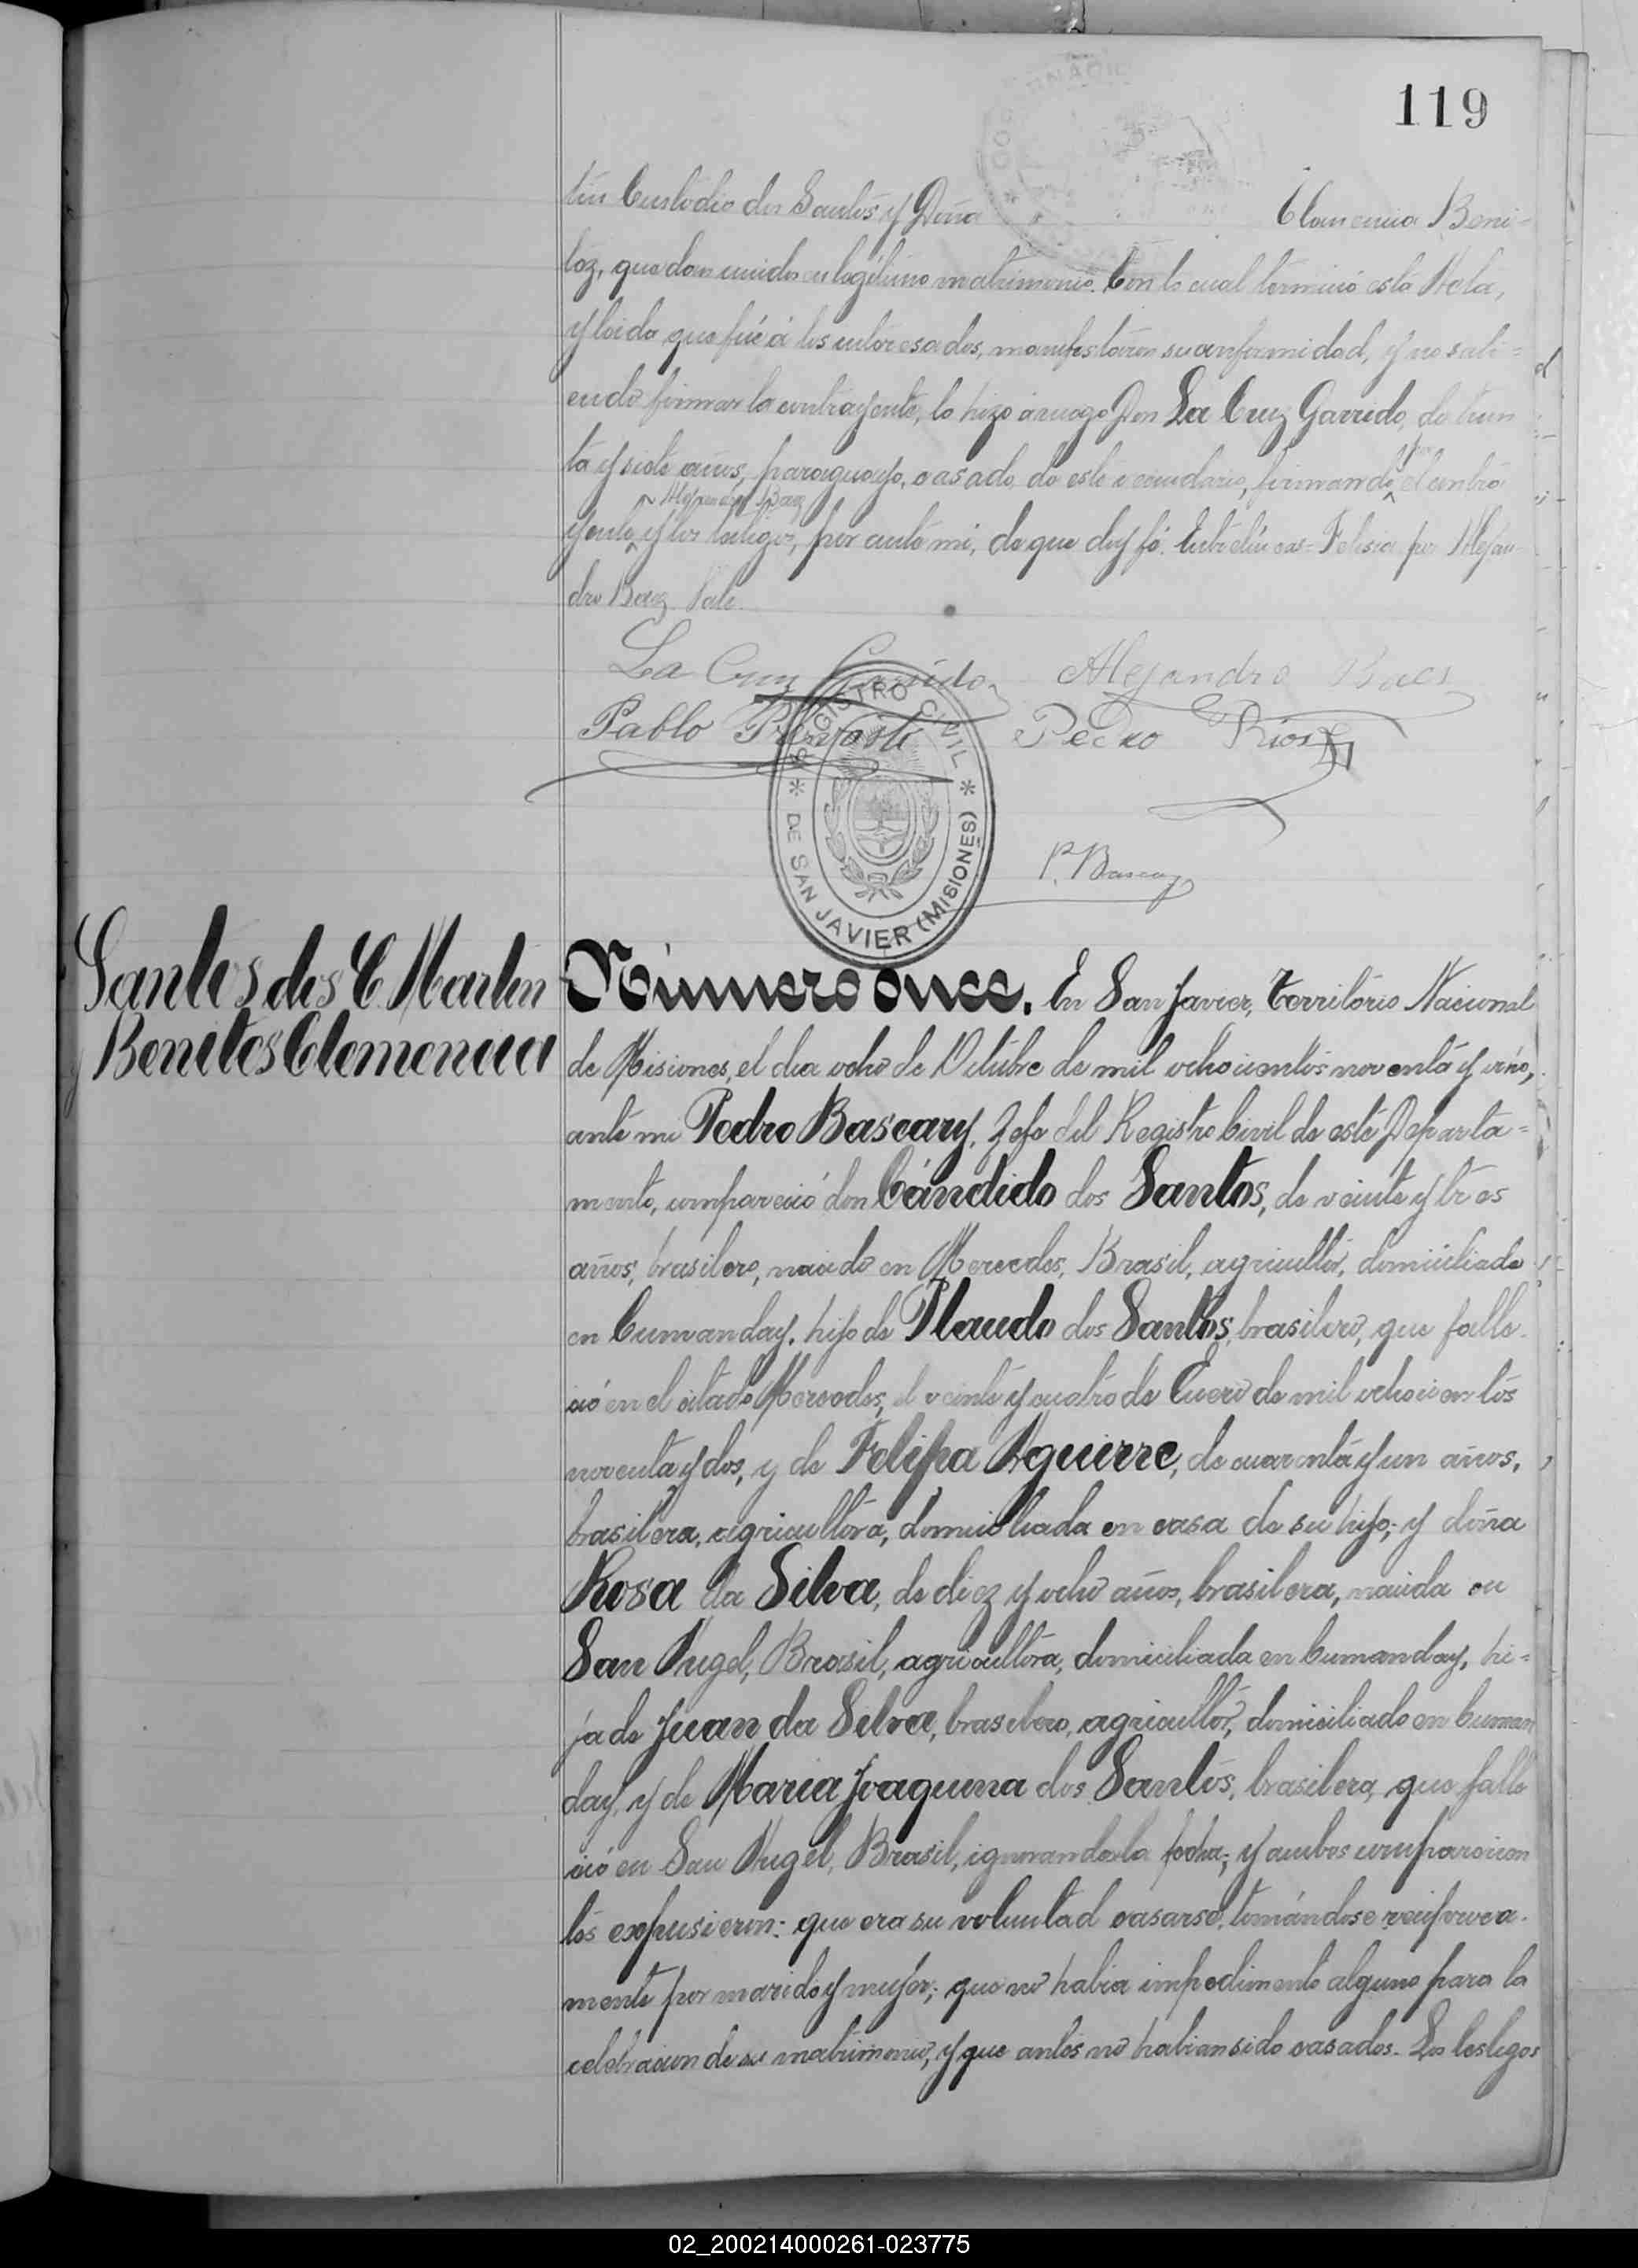 119
tin Custodio dos Santos y Doña Clemencia Beni-
tez, quedan unidos en legítimo matrimonio. Con lo cual terminó esta Acta,
y leida que fué á los interesados, manifestaron su conformidad, y no sabi=
endo firmar la contrayente, lo hizo á ruego Don La Cruz Garrido, de trein
ta y siete años, paraguayo, casado, de este vecindario, firmando por el contra
Alejandro Baez
yente y los testigos, por ante mi, de que doy fé. Entrelíneas = por Alejan-
dro Baez Vale.
La Cruz Garrido Alejandro Baes
Pablo Pedro Rios
REGISTRO CIVIL
* DE SAN JAVIER (MISIONES) *
P. Bascary
Santos dos C Martin
y Benites Clemencia
Número once. En San Javier, Territorio Nacional
de Misiones, el dia ocho de Octubre de mil ochocientos noventa y
ante mi Pedro Bascary, Jefe del Registro Civil de este Departa=
mento, compareció don Cándido dos Santos, de veinte y tres
años, brasilero, nacido en Mercedes, Brasil, agricultor, domiciliado
en Cumanday, hijo de Plaudo dos Santos, brasilero, que falle
ció en el citado Mercedes, el veinte y cuatro de Enero de mil ochocientos
noventa y dos, y de Felipa Aguirre, de cuarenta y un años,
brasilera, agricultora, domiciliada en casa de su hijo; y doña
Rosa da Silva, de diez y ocho años, brasilera, nacida en
San Angel, Brasil, agricultora, domiciliada en Cumanday, hi=
ja de Juan da Silva, brasilero, agricultor, domiciliado en Cuman
day, y de Maria Joaquina dos Santos, brasilera, que falle
ció en San Angel, Brasil, ignorandose la fecha; y ambos comparecien
tes expusieron: que era su voluntad casarse, tomándose reciproca-
mente por marido y mujer; que no habia impedimento alguno para la
celebracion de su matrimonio, y que antes no habian sido casados. Los testigos
02_200214000261-023775